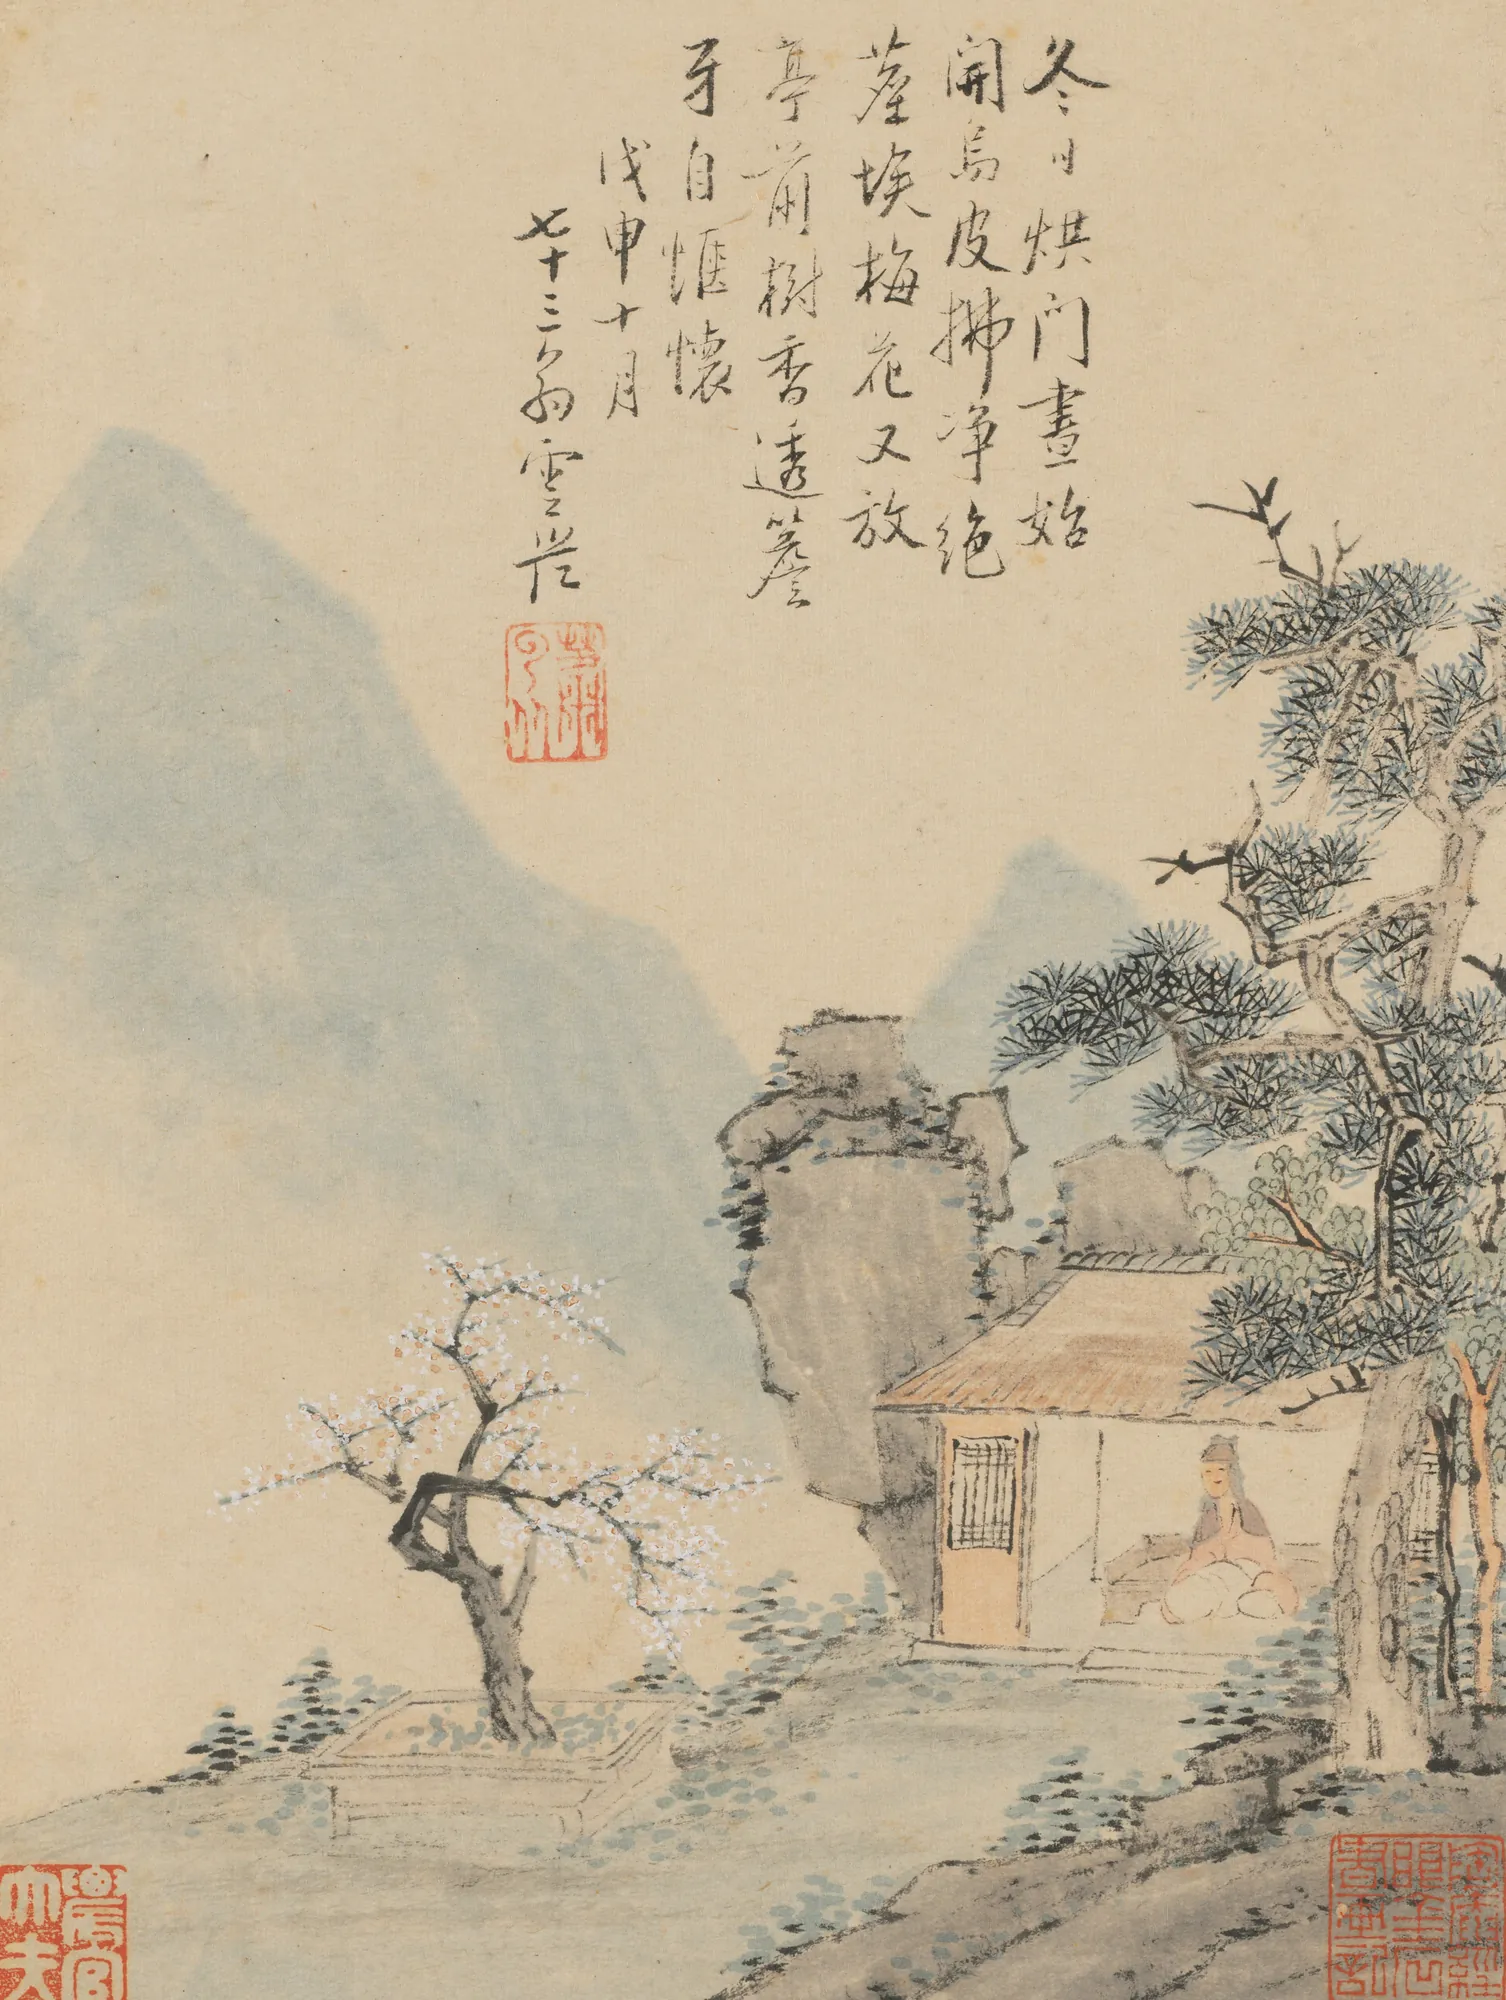 冬日烘門晝始
開烏皮拂净絶
塵埃梅花又放
亭前樹香透簷
牙自愜懷
戊申十月
七十三翁雲從